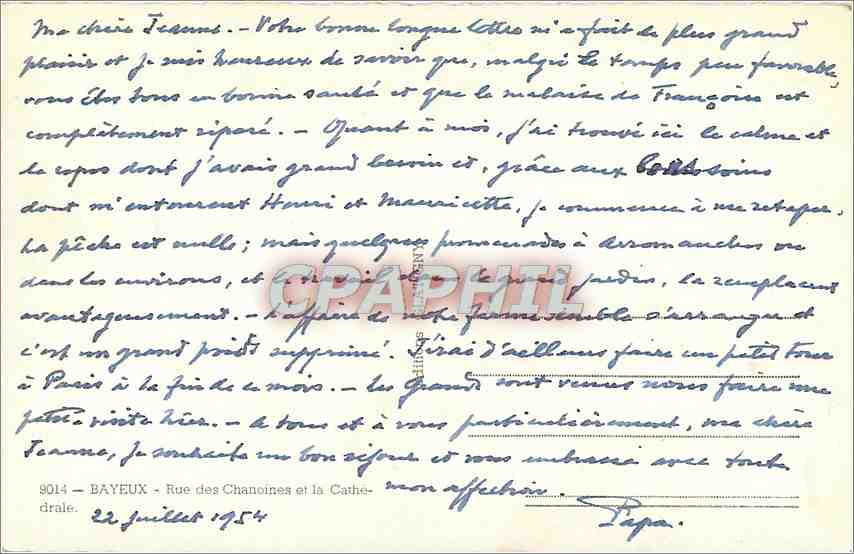 Ma chère Jeanne. - Votre bonne longue lettre m'a fait le plus grand
plaisir et je suis heureux de savoir que, malgré le temps peu favorable,
vous êtes tous en bonne santé et que le malaise de Françoise est
complètement réparé. - Quant à moi, j'ai trouvé ici le calme et
le repos dont j'avais grand besoin et, grâce aux bons soins
dont m'entourent Henri et Mauricette, je commence à me retaper.
La pêche est nulle ; mais quelques promenades à Arromanches ou
dans les environs, et le travail dans le grand jardin, la remplacent
avantageusement. - L'affaire de notre ferme semble s'arranger et
c'est un grand poids supprimé. J'irai d'ailleurs faire un petit tour
à Paris à la fin de ce mois. - Les Grands sont venus nous faire une
petite visite hier. - A tous et à vous particulièrement, ma chère
Jeanne, je souhaite un bon séjour et vous embrasse avec toute
mon affection.
Papa.
9014 — BAYEUX - Rue des Chanoines et la Cathé-
drale.
22 juillet 1954
CPAPHIL